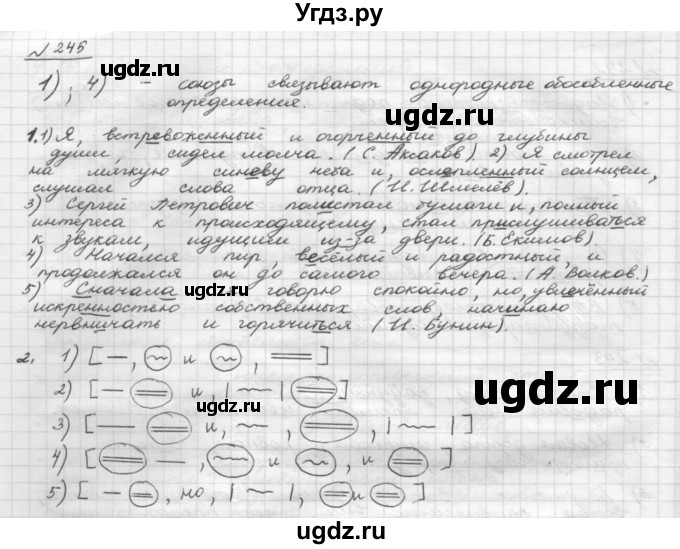 Угдз.ру
№ 245
1); 4) – союзы связывают однородные обособленные
определения.
1.1) Я, встревоженный и огорченный до глубины
души, сидел молча. (С. Аксаков). 2) Я смотрел
на мягкую синеву неба и, ослепленный солнцем,
слушал слова отца. (И. Шмелёв).
3) Сергей Петрович полистал бумаги и, полный
интереса к происходящему, стал прислушиваться
к звукам, идущим из-за двери. (Б. Екимов).
4) Начался пир, весёлый и радостный, и
продолжался он до самого вечера. (А. Волков.)
5) Сначала я говорю спокойно, но, увлечённый
искренностью собственных слов, начинаю
нервничать и горячиться (И. Бунин).
2. 1) [ — , и , ]
2) [ — и, | | ]
3) [ — и, , , | | ]
4) [ — , и , и ]
5) [ — , но, | | , и ]
ugdz.ru
ugdz.ru
ugdz.ru
ugdz.ru
ugdz.ru
ugdz.ru
ugdz.ru
ugdz.ru